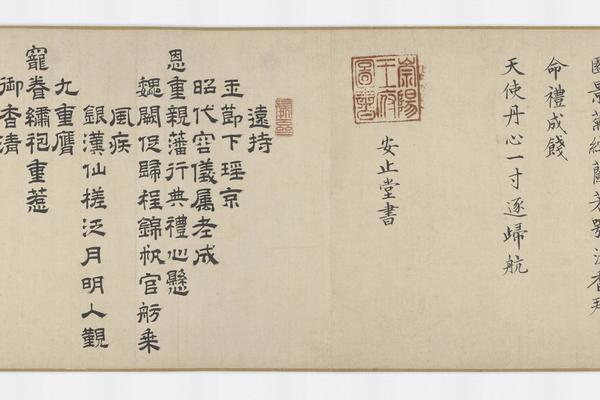 命禮成餞
天使丹心一寸逐歸航
崇陽
王府
圖書
安止堂書
遠持
玉節下瑤京
昭代容儀屬老成
恩重親藩行典禮心懸
魏闕促歸程錦帆官舫乘
風疾
銀漢仙槎泛月明人覲
九重膺
寵眷繡袍重惹
御香清